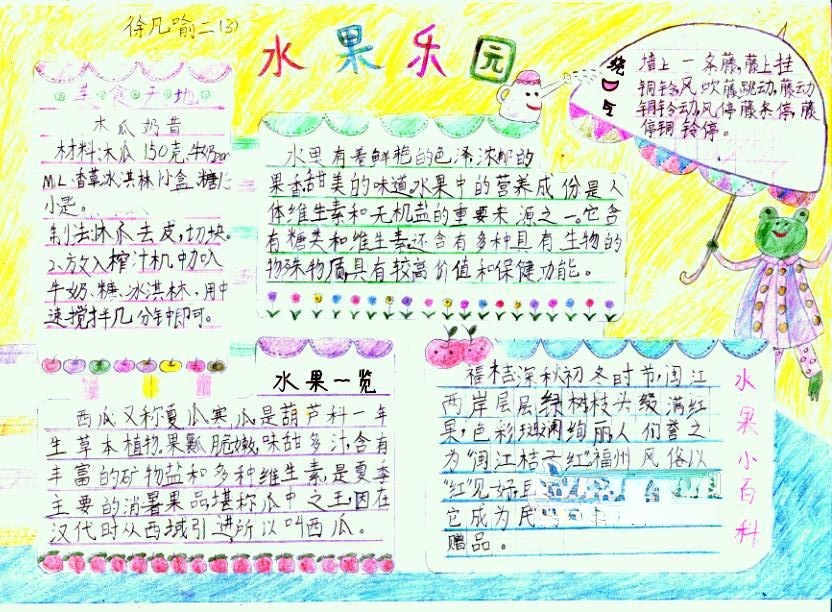 徐凡喻二(3)
水果乐园
美食天地
木瓜奶昔
材料:木瓜150克,牛奶
ML.香草冰淇林1小盒.糖
小匙。
去皮,切块。
2.放入榨汁机中加入
牛奶、糖、冰淇林.用中
速搅拌几分钟即可。
水果有着鲜艳的色泽,浓郁的
果香,甜美的味道.水果中的营养成份是人
体维生素和无机盐的重要来源之一。它含
有糖类和维生素.还含有多种具有生物的
物殊物质,具有较高价值和保健功能。
绕口令
墙上一条藤,藤上挂
铜铃,风吹藤跳动,藤动
铜铃动,风停藤条停,藤
停铜铃停。
水果一览
西瓜又称夏瓜寒瓜是葫芦科一年
生草本植物.果瓤脆嫩,味甜多汁,含有
丰富的矿物盐和多种维生素,是夏季
主要的消暑果品.堪称瓜中之王,因在
汉代时从西域引进所以叫西瓜。
水果小百科
福桔深秋初冬时节,闽江
两岸层层绿树枝头缀满红
果,色彩斑斓绚丽.人们誉之
为"闽江桔子红"福州风俗以
"红"见好,且
它成为民
赠品。